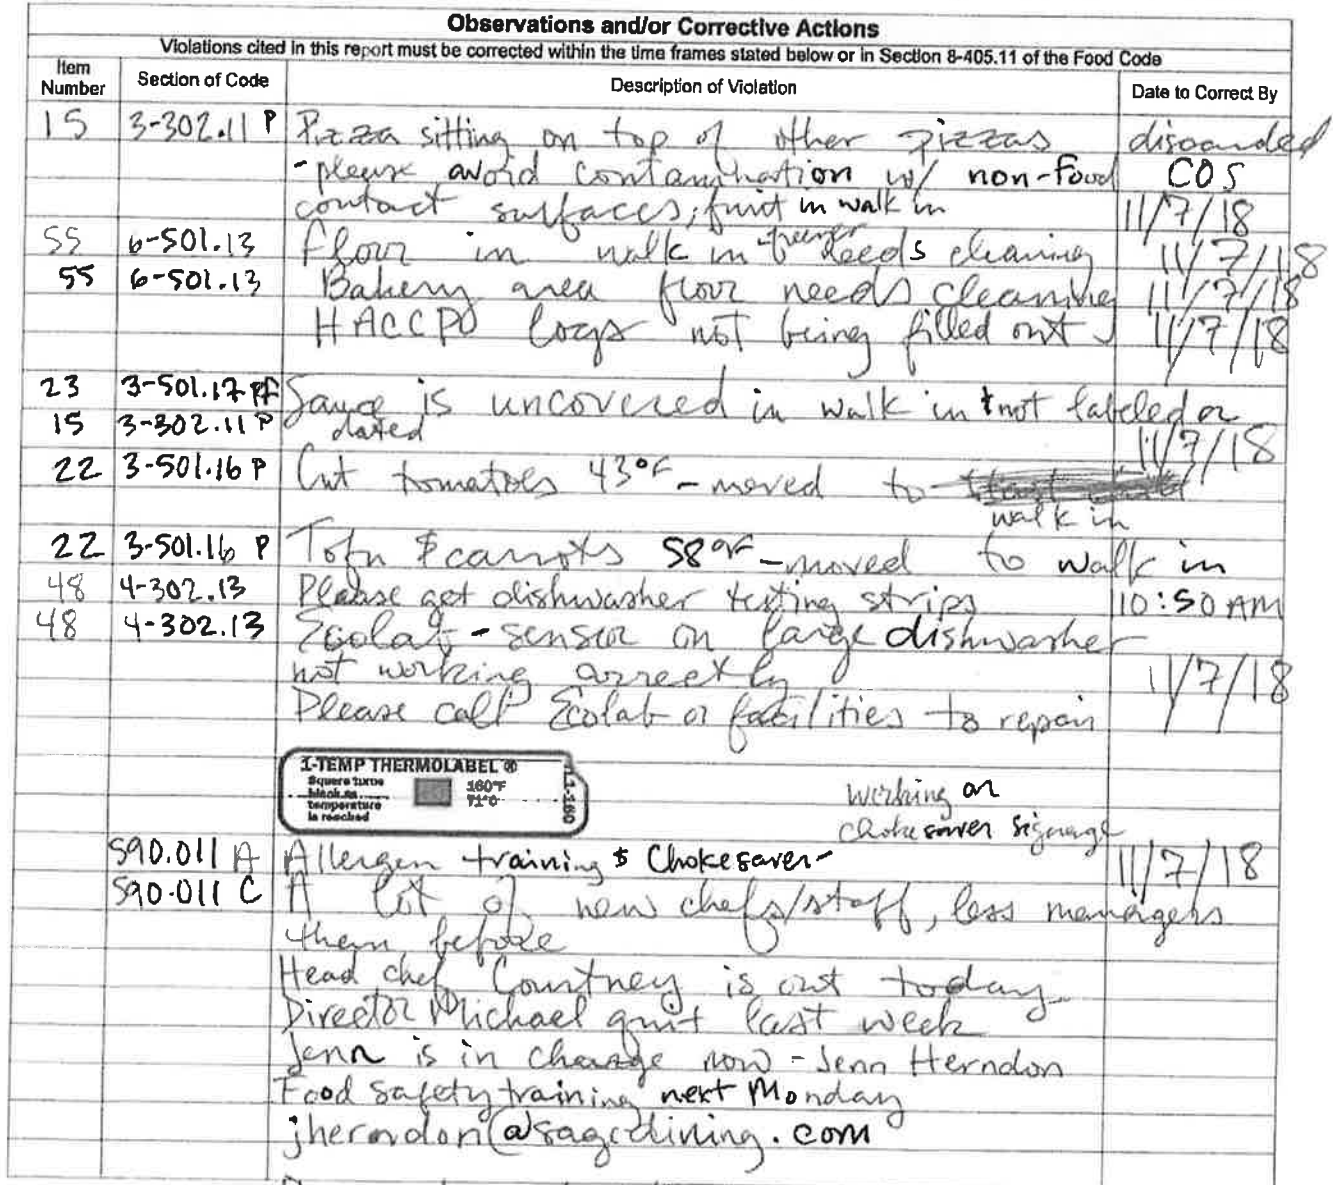 Observations and/or Corrective Actions
Violations cited in this report must be corrected within the time frames stated below or in Section 8-405.11 of the Food Code
Item Number Section of Code Description of Violation Date to Correct By
15 3-302.11 P Pizza sitting on top of other pizzas discarded
- please avoid contamination w/ non-food COS
contact surfaces; fruit in walk in 11/7/18
55 6-501.13 Floor in walk in freezer needs cleaning 11/7/18
55 6-501.13 Bakery area floor needs cleaning 11/7/18
HACCP logs not being filled out 11/7/18
23 3-501.17 Pf Sauce is uncovered in walk in + not labeled or
15 3-302.11 P dated 11/7/18
22 3-501.16 P Cut tomatoes 43°F - moved to
walk in
22 3-501.16 P Tofu & carrots 58°F - moved to walk in
48 4-302.13 Please get dishwasher testing strips 10:50 AM
48 4-302.13 Ecolab - sensor on large dishwasher
not working correctly 11/7/18
Please call Ecolab or facilities to repair
1-TEMP THERMOLABEL ®
Square turns
black as
temperature
is reached
160°F
71°C
TL1-160
working on
chokesaver signage
590.011 A Allergen training & Chokesaver- 11/7/18
590.011 C A lot of new chefs/staff, less managers
then before
Head chef Courtney is out today
Director Michael quit last week
Jenn is in charge now - Jenn Herndon
Food safety training next Monday
jherndon@sagedining.com